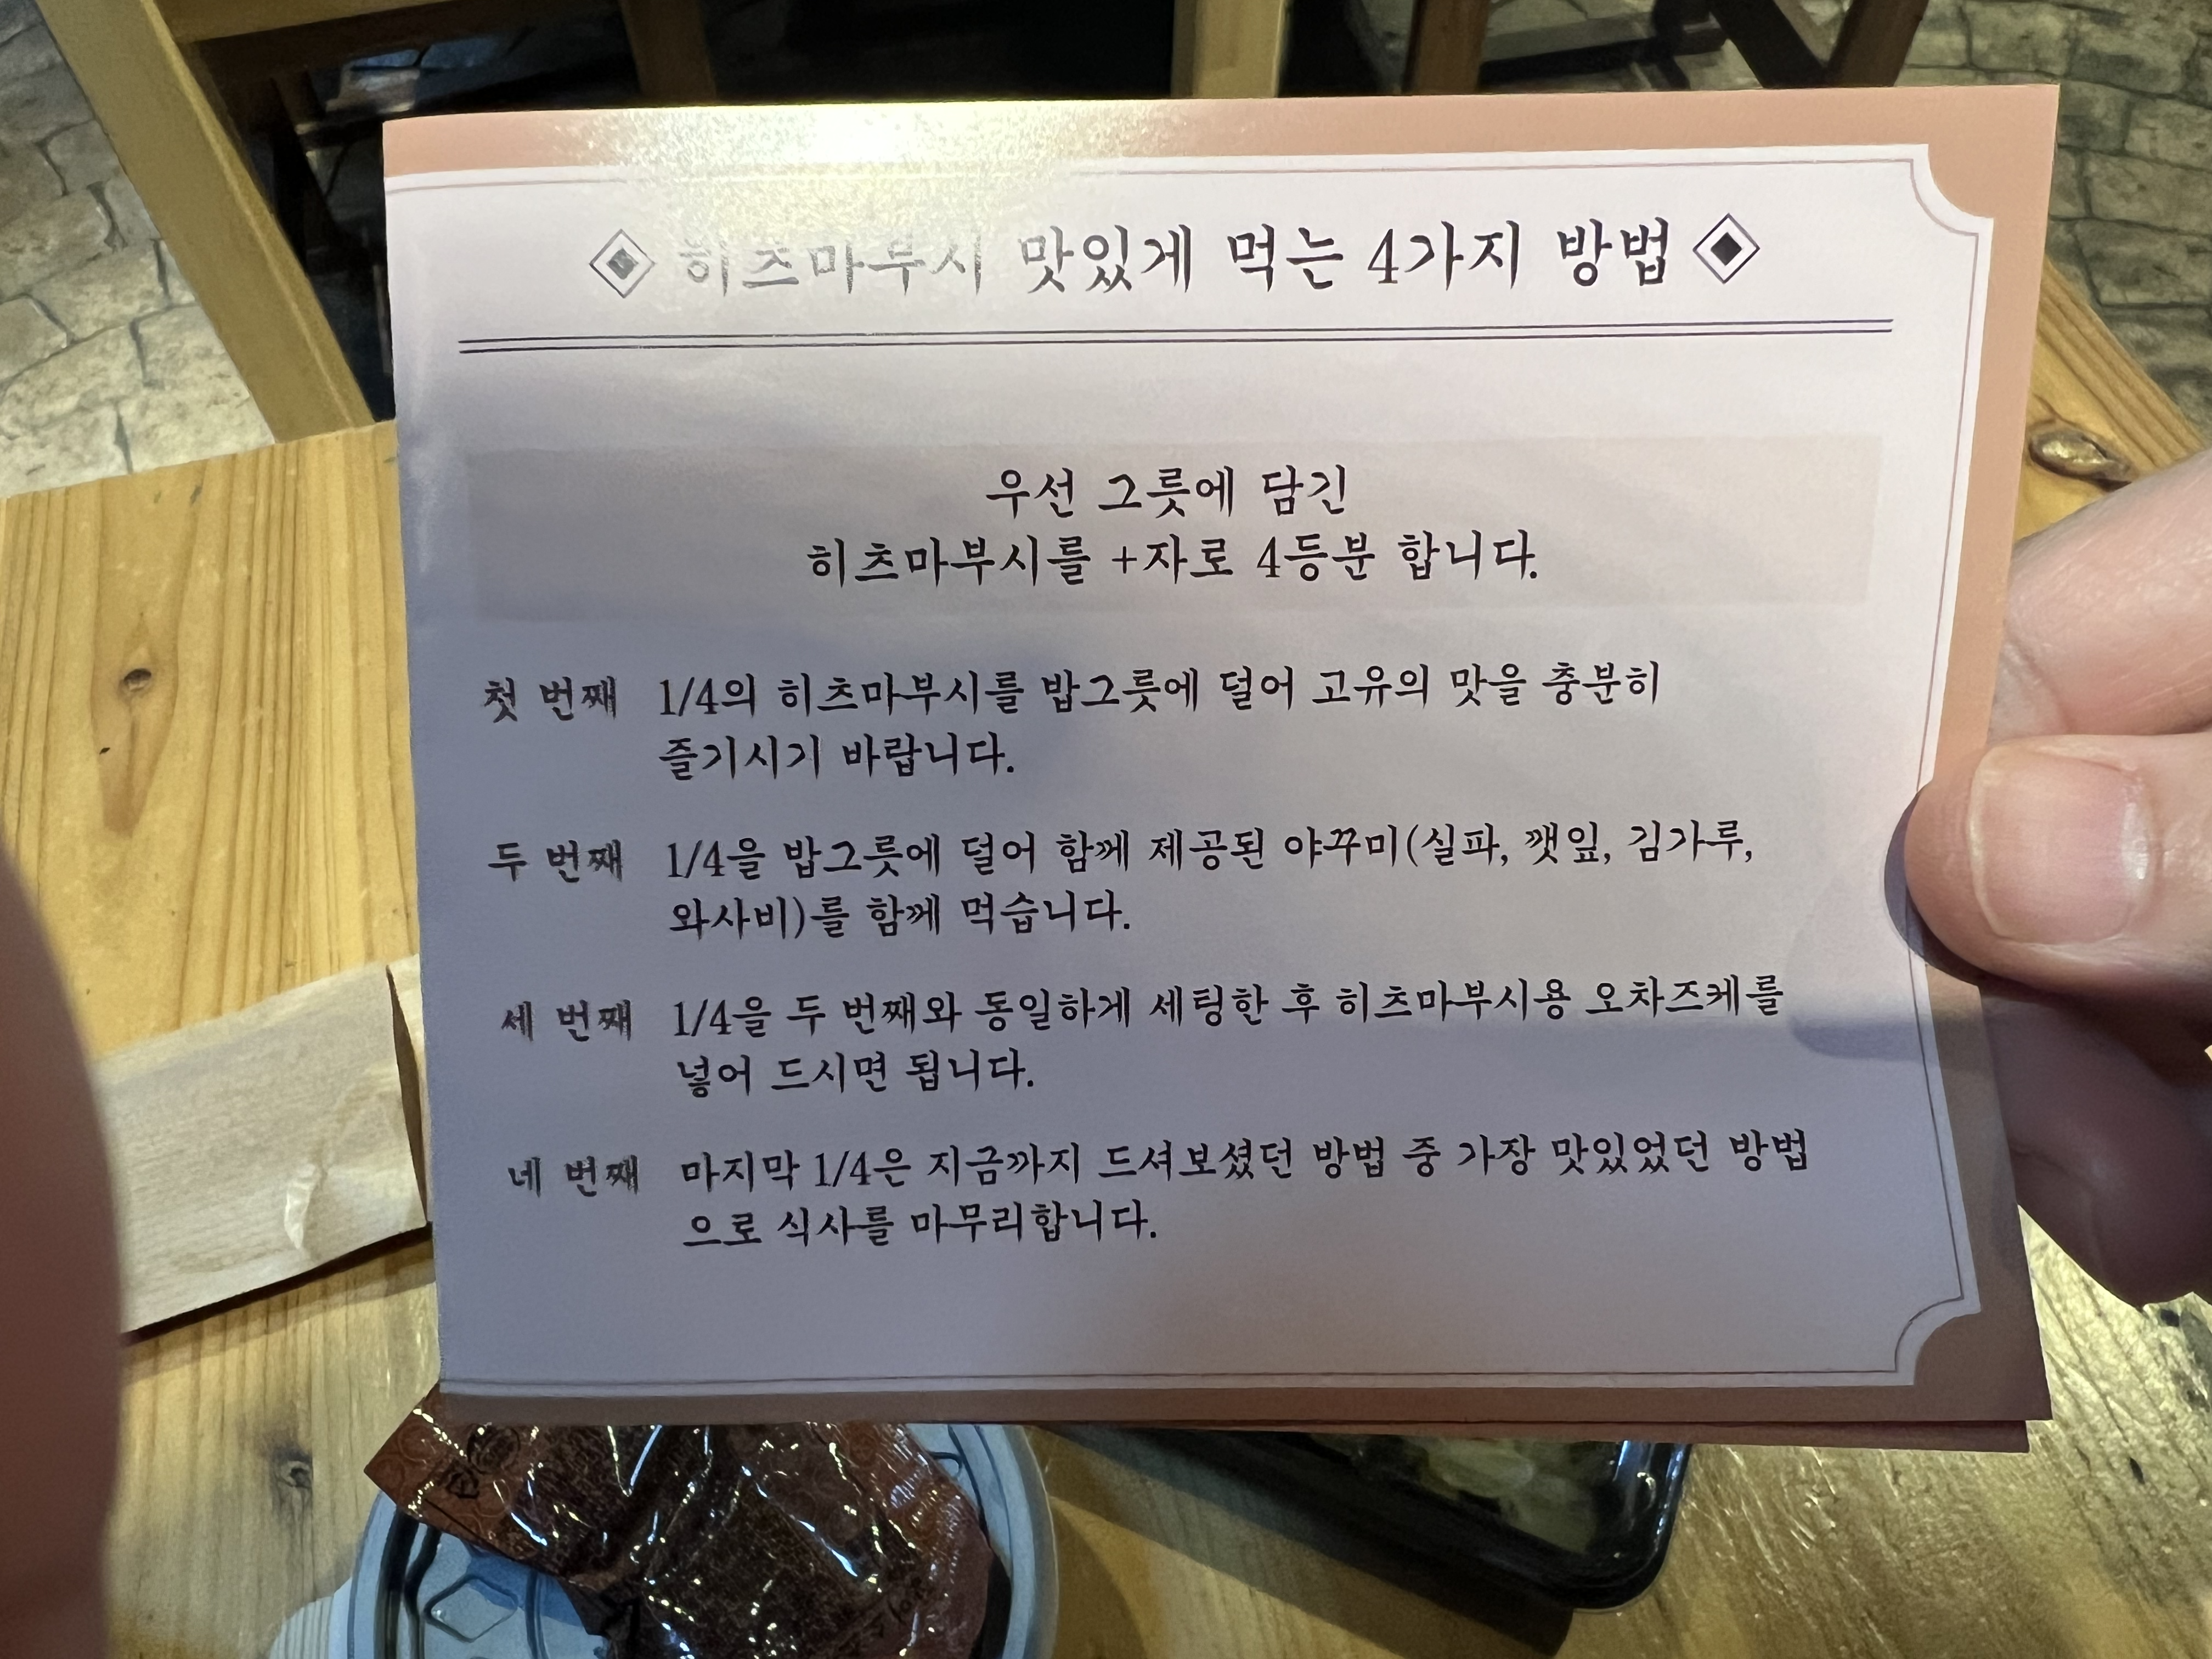 히츠마부시 맛있게 먹는 4가지 방법
우선 그릇에 담긴
히츠마부시를 +자로 4등분 합니다.
첫 번째 1/4의 히츠마부시를 밥그릇에 덜어 고유의 맛을 충분히
즐기시기 바랍니다.
두 번째 1/4을 밥그릇에 덜어 함께 제공된 야꾸미(실파, 깻잎, 김가루,
와사비)를 함께 먹습니다.
세 번째 1/4을 두 번째와 동일하게 세팅한 후 히츠마부시용 오차즈케를
넣어 드시면 됩니다.
네 번째 마지막 1/4은 지금까지 드셔보셨던 방법 중 가장 맛있었던 방법
으로 식사를 마무리합니다.